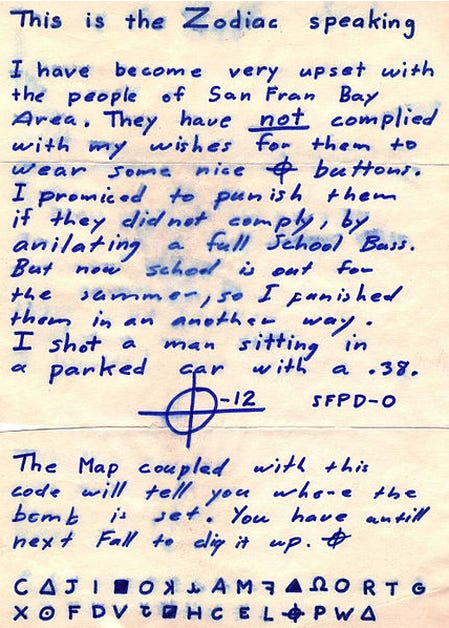 This is the Zodiac speaking
I have become very upset with
the people of San Fran Bay
Area. They have not complied
with my wishes for them to
wear some nice ⌖ buttons.
I promiced to punish them
if they did not comply, by
anilating a full School Buss.
But now school is out for
the summer, so I punished
them in an another way.
I shot a man sitting in
a parked car with a .38.
⌖-12 SFPD-0
The Map coupled with this
code will tell you where the
bomb is set. You have untill
next Fall to dig it up. ⌖
C Δ J I ■ O ꓘ A M ꟻ ▲ Ω O R T G
X ⊙ F D V H C E L ⌖ P W Δ